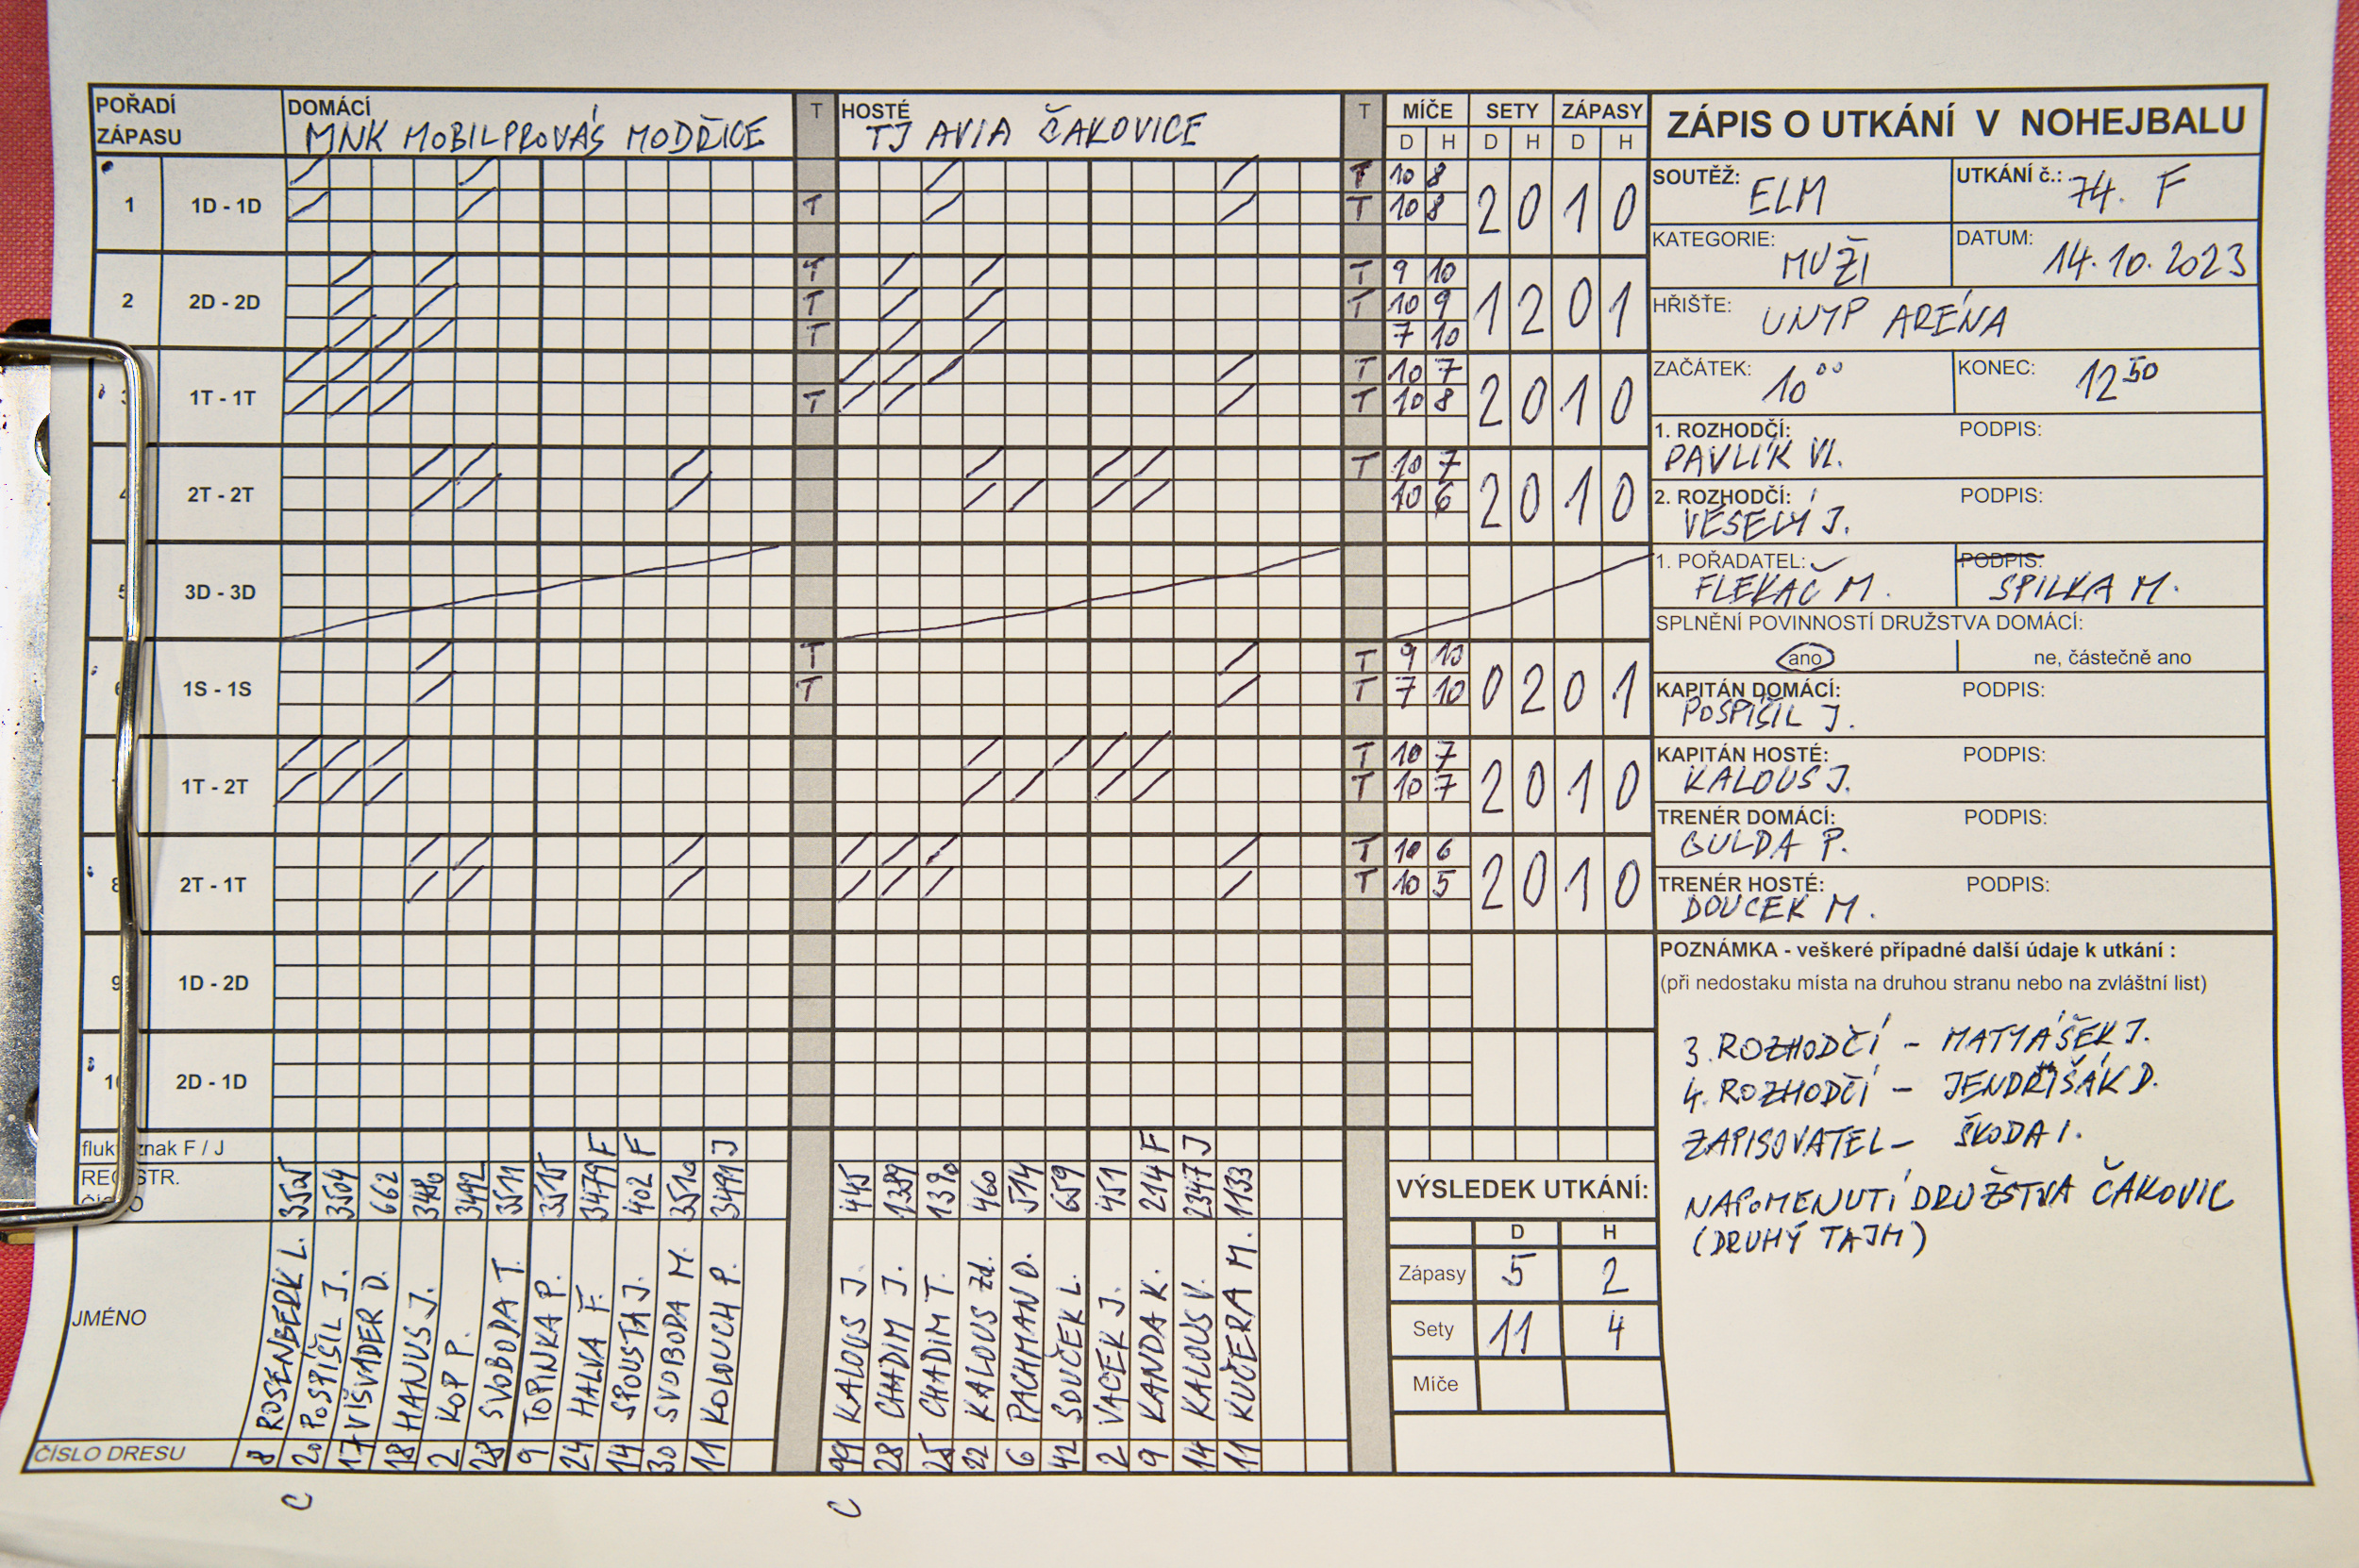 POŘADÍ ZÁPASU DOMÁCÍ T HOSTÉ T MÍČE SETY ZÁPASY
MNK MOBILPROVÁS MODŘICE TJ AVIA ČAKOVICE D H D H D H
ZÁPIS O UTKÁNÍ V NOHEJBALU
1 1D - 1D T 10 8 2 0 1 0
T T 10 8
2 2D - 2D T T 9 10 1 2 0 1
T T 10 9
T 7 10
1T - 1T T 10 7 2 0 1 0
T T 10 8
2T - 2T T 10 7 2 0 1 0
10 6
3D - 3D
1S - 1S T T 9 10 0 2 0 1
T T 7 10
1T - 2T T 10 7 2 0 1 0
T 10 7
8 2T - 1T T 10 6 2 0 1 0
T 10 5
9 1D - 2D
2D - 1D
znak F / J F F J F J
ČÍSLO 3504 662 3492 3511 3515 3479 402 3510 3491 445 1389 1390 460 514 659 451 214 2347 1133
JMÉNO
ROSENBERK L.
POSPÍŠIL J.
VIŠVADER D.
HANUS J.
KOP P.
SVOBODA T.
TOPINKA P.
HALVA F.
SPOUSTA J.
SVOBODA M.
KOLOUCH P.
KALOUS J.
CHADIM J.
CHADIM T.
KALOUS Zd.
PACHMAN D.
SOUČEK L.
VACEK J.
KANDA K.
KALOUS V.
KUČERA M.
ČÍSLO DRESU 8 20 17 18 2 28 9 24 14 30 11 99 28 25 22 6 42 2 9 14 11
C C
SOUTĚŽ: ELM UTKÁNÍ č.: 74. F
KATEGORIE: MUŽI DATUM: 14.10.2023
HŘIŠTE: UNYP ARÉNA
ZAČÁTEK: 10 00 KONEC: 12 50
1. ROZHODČÍ: PODPIS:
PAVLÍK Vl.
2. ROZHODČÍ: PODPIS:
VESELÝ J.
1. POŘADATEL: PODPIS:
FLEKAČ M. SPILKA M.
SPLNĚNÍ POVINNOSTÍ DRUŽSTVA DOMÁCÍ:
ano ne, částečně ano
KAPITÁN DOMÁCÍ: PODPIS:
POSPÍŠIL J.
KAPITÁN HOSTÉ: PODPIS:
KALOUS J.
TRENÉR DOMÁCÍ: PODPIS:
GULDA P.
TRENÉR HOSTÉ: PODPIS:
DOUCEK M.
POZNÁMKA - veškeré případné další údaje k utkání :
(při nedostaku místa na druhou stranu nebo na zvláštní list)
3. ROZHODČÍ - MATYÁŠEK J.
4. ROZHODČÍ - JENDŘIŠÁK D.
ZAPISOVATEL - ŠKODA I.
NAPOMENUTÍ DRUŽSTVA ČAKOVIC
(DRUHÝ TAJM)
VÝSLEDEK UTKÁNÍ:
D H
Zápasy 5 2
Sety 11 4
Míče